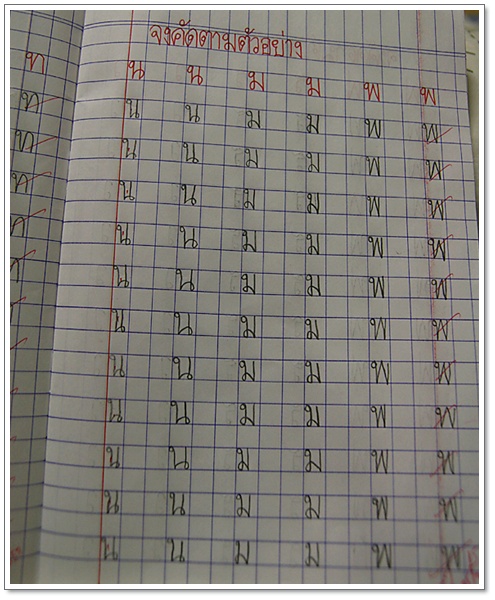 ท
ท
ท
ท
ท
จงคัดตามตัวอย่าง
น น ม ม พ พ
น น ม ม พ พ
น น ม ม พ พ
น น ม ม พ พ
น น ม ม พ พ
น น ม ม พ พ
น น ม ม พ พ
น น ม ม พ พ
น น ม ม พ พ
น น ม ม พ พ
น น ม ม พ พ
น น ม ม พ พ